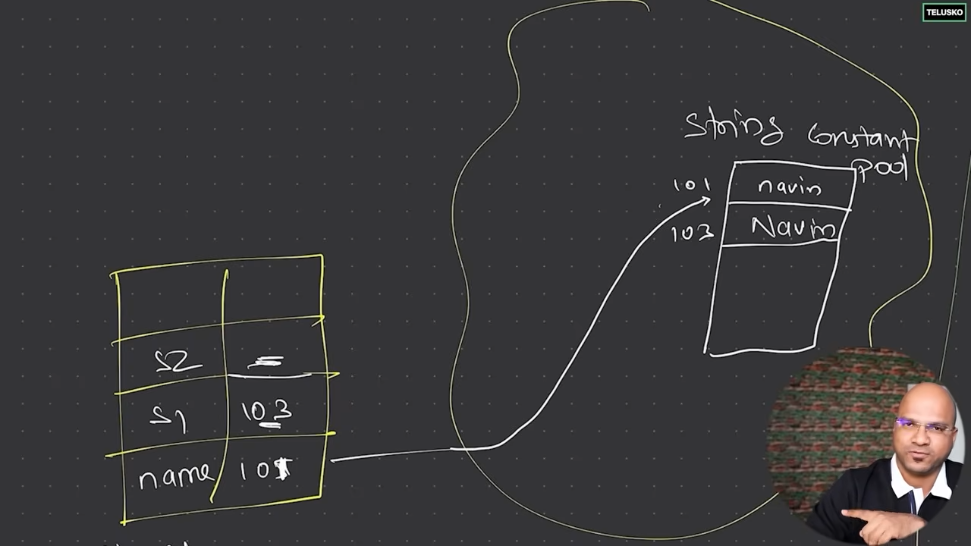 TELUSKO
String Constant
pool
101 navin
103 Navin
S2
S1 103
name 101